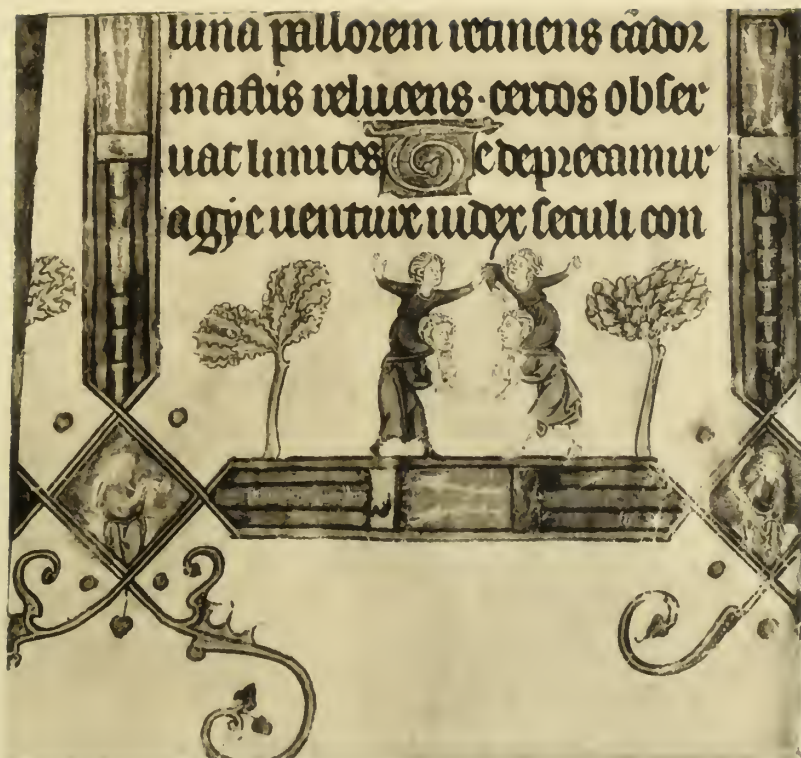 luna pallorem retinens cādor
inastris relucens · certos obser
uat limites Te deprecamur
agye uenture iudex seculi con